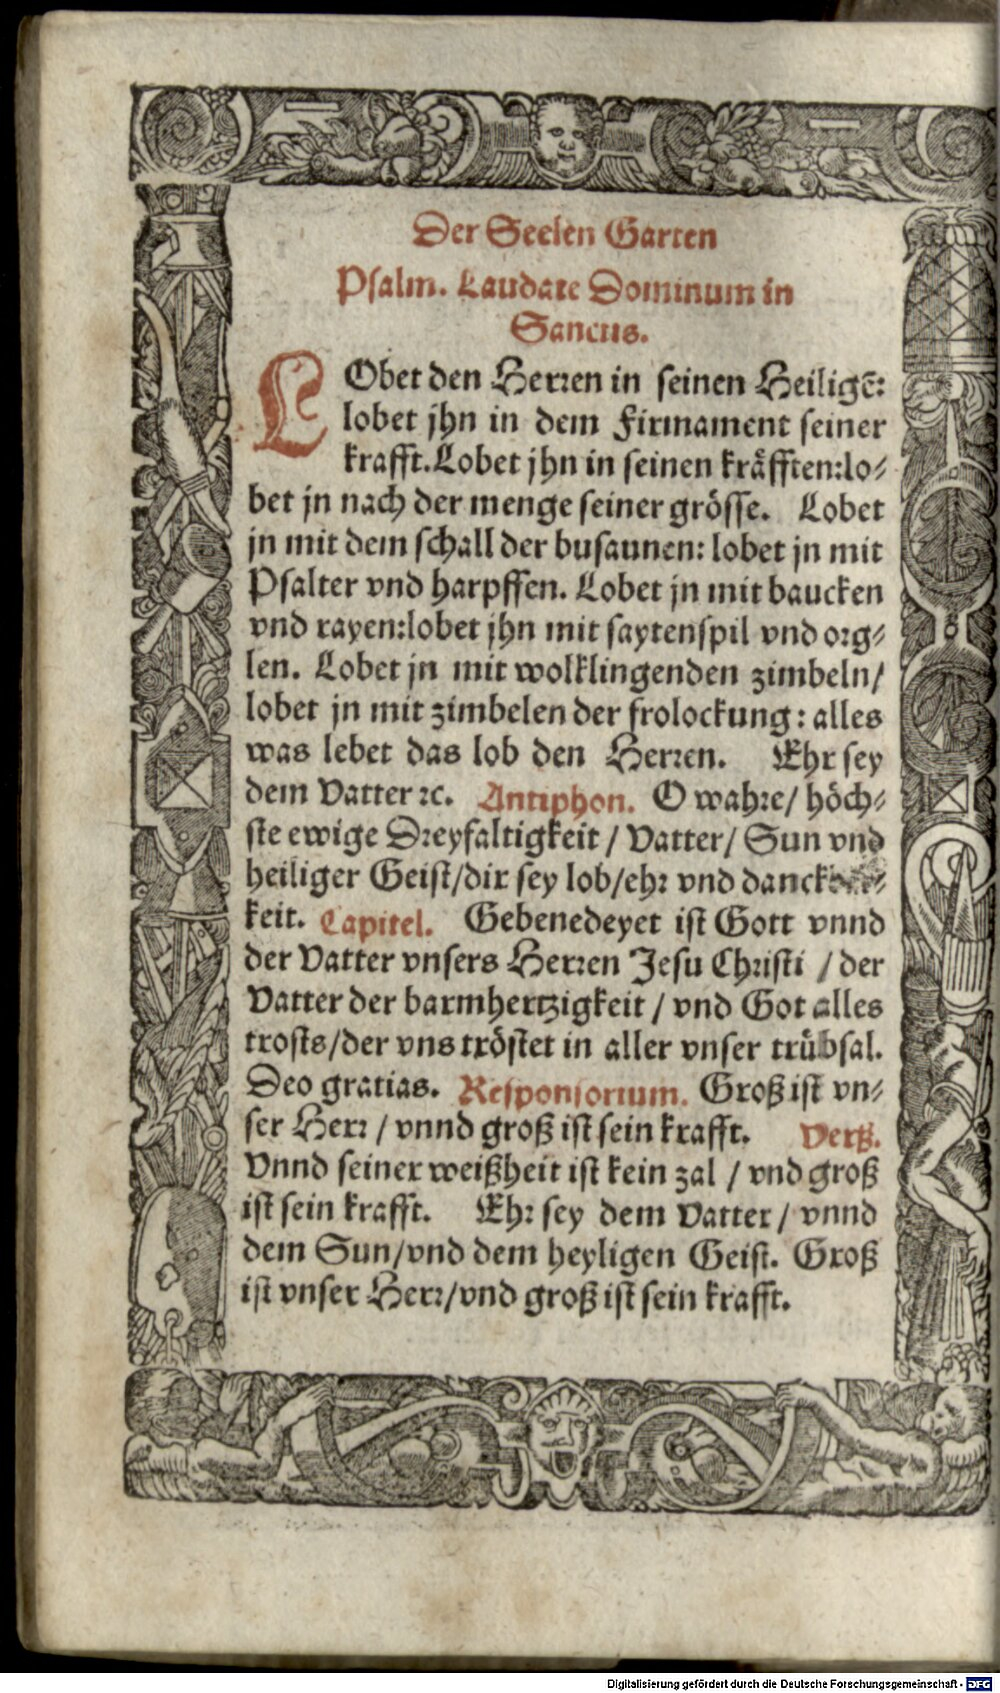 Der Seelen Garten
Psalm. Laudate Dominum in
Sanctis.
LObet den Herren in seinen Heiligē:
lobet jhn in dem Firmament seiner
krafft. Lobet jhn in seinen kräfften: lo-
bet jn nach der menge seiner grösse. Lobet
jn mit dem schall der busaunen: lobet jn mit
Psalter vnd harpffen. Lobet jn mit baucken
vnd rayen: lobet jhn mit saytenspil vnd org-
len. Lobet jn mit wolklingenden zimbeln/
lobet jn mit zimbelen der frolockung: alles
was lebet das lob den Herren. Ehr sey
dem Vatter ꝛc. Antiphon. O wahre/ höch-
ste ewige Dreyfaltigkeit / Vatter/ Sun vnd
heiliger Geist/dir sey lob/ehr vnd
keit. Capitel. Gebenedeyet ist Gott vnnd
der Vatter vnsers Herren Jesu Christi / der
Vatter der barmhertzigkeit / vnd Got alles
trosts/der vns tröstet in aller vnser trübsal.
Deo gratias. Responsorium. Groß ist vn-
ser Herr / vnnd groß ist sein krafft. Verß.
Vnnd seiner weißheit ist kein zal / vnd groß
ist sein krafft. Ehr sey dem Vatter / vnnd
dem Sun/vnd dem heyligen Geist. Groß
ist vnser Herr/vnd groß ist sein krafft.
Digitalisierung gefördert durch die Deutsche Forschungsgemeinschaft - DFG